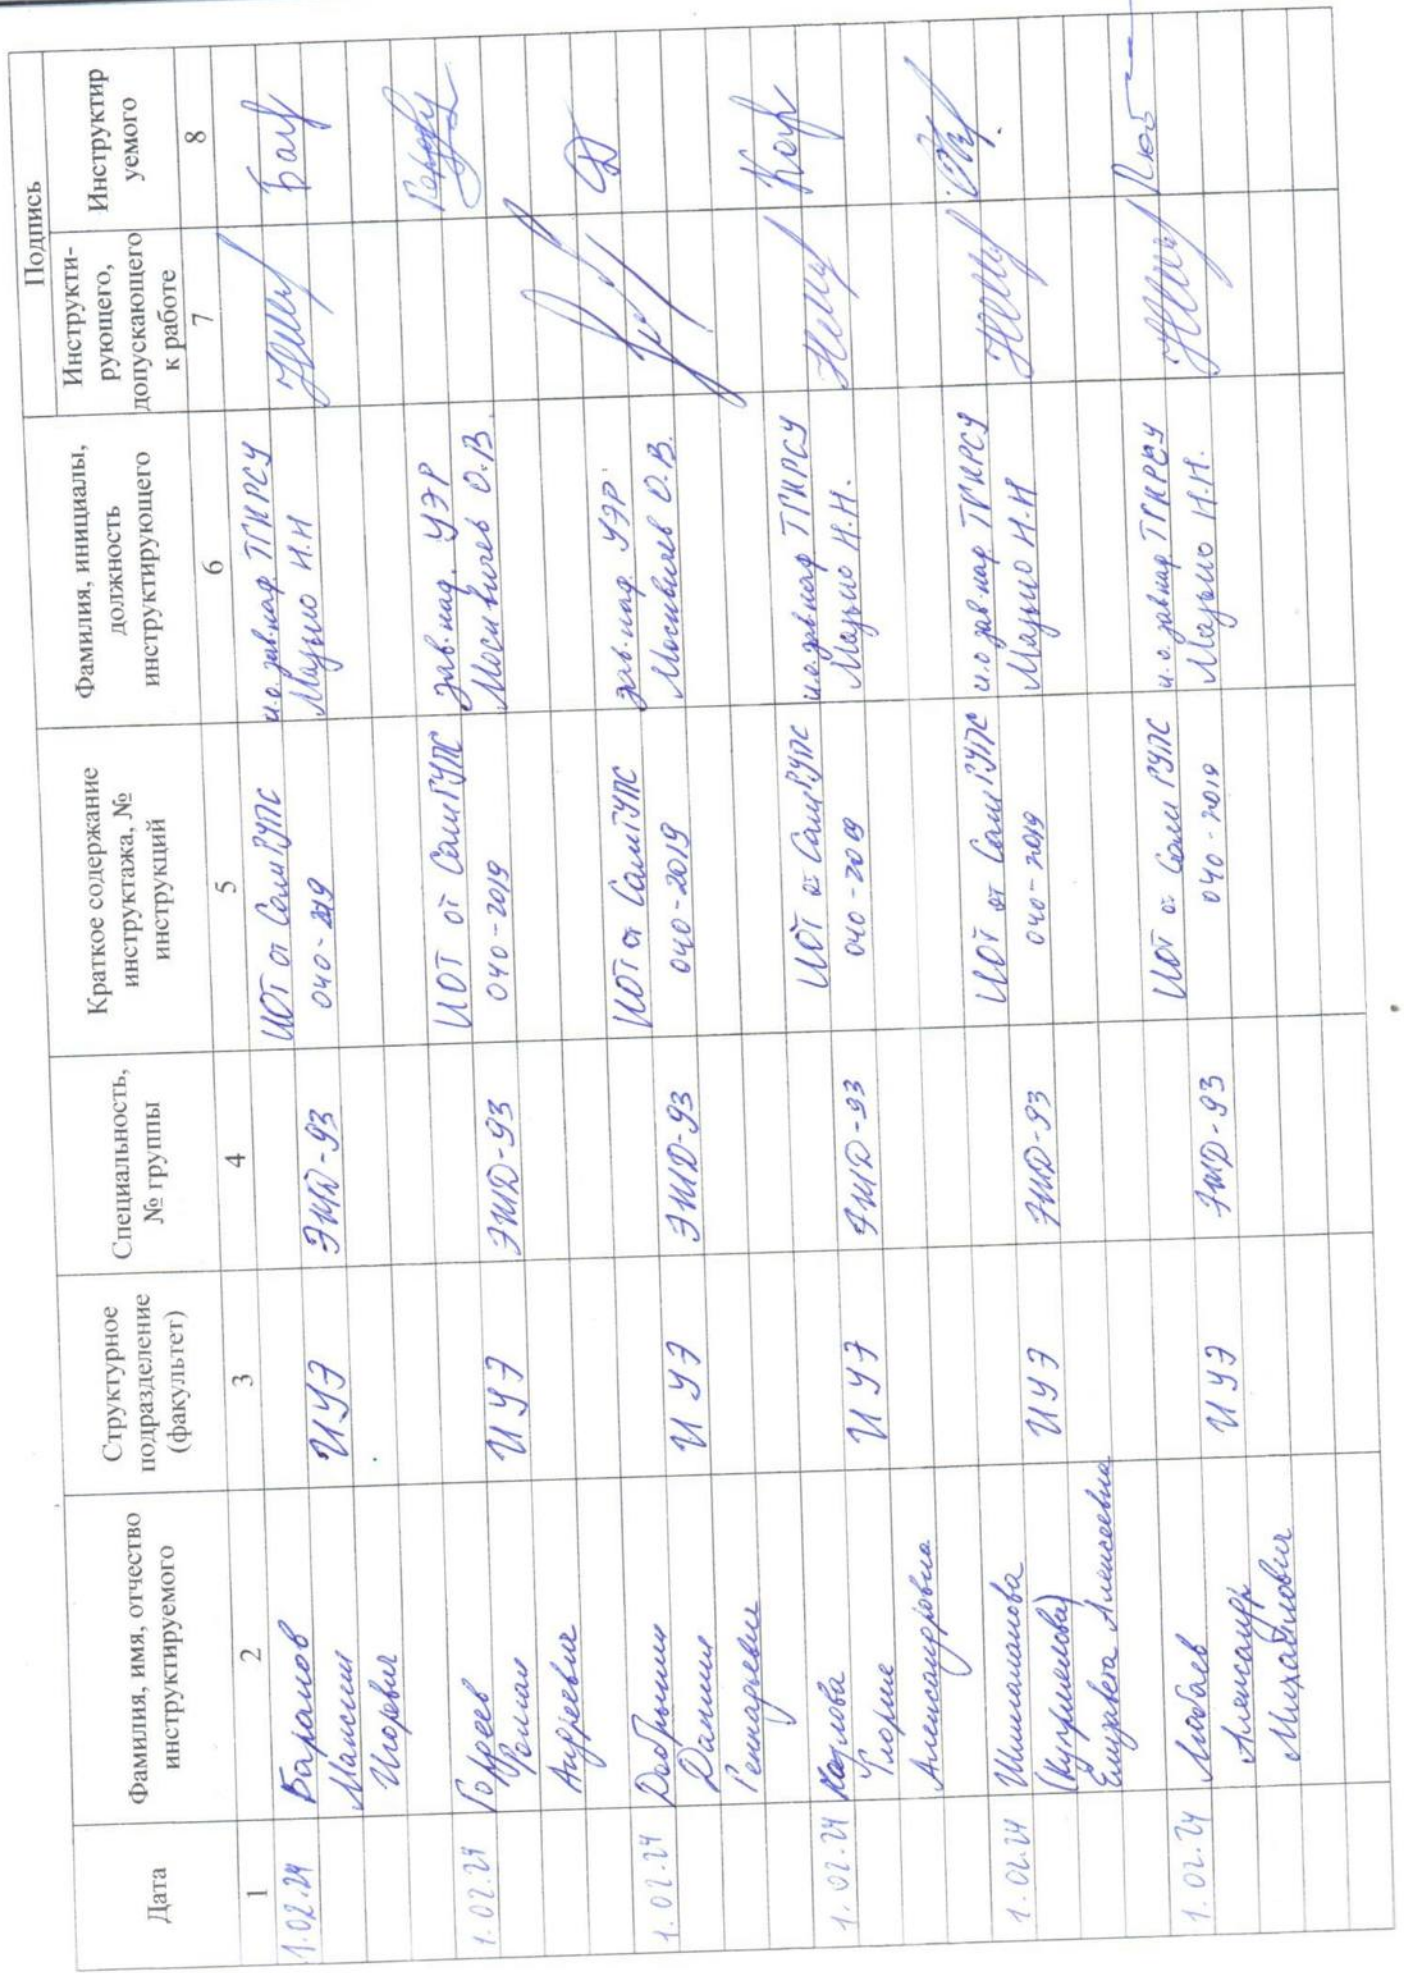 Дата
Фамилия, имя, отчество
инструктируемого
Структурное
подразделение
(факультет)
Специальность,
№ группы
Краткое содержание
инструктажа, №
инструкций
Фамилия, инициалы,
должность
инструктирующего
Подпись
Инструкти-
рующего,
допускающего
к работе
Инструктир
уемого
1 2 3 4 5 6 7 8
1.02.24
Баранов
Максим
Игоревич
ИУЭ
ЭЖД-93
ИОТ от СамГУПС
040-2019
и.о. зав.каф. ТГКРСУ
Мазько Н.Н
Бар
1.02.24
Гордеев
Роман
Андреевич
ИУЭ
ЭЖД-93
ИОТ от СамГУПС
040-2019
зав.каф. УЭР
Москвичев О.В.
1.02.24
Добрынин
Даниил
Геннадьевич
ИУЭ
ЭЖД-93
ИОТ от СамГУПС
040-2019
зав.каф. УЭР
Москвичев О.В.
1.02.24
Козлова
Глория
Александровна
ИУЭ
ЭЖД-93
ИОТ от СамГУПС
040-2019
и.о. зав.каф ТГКРСУ
Мазько Н.Н.
1.02.24
(Куприенова)
Елизавета Алексеевна
ИУЭ
ЭЖД-93
ИОТ от СамГУПС
040-2019
и.о зав.каф ТГКРСУ
Мазько Н.Н
1.02.24
Любаев
Александр
Михайлович
ИУЭ
ЭЖД-93
ИОТ от СамГУПС
040-2019
и.о. зав.каф ТГКРСУ
Мазько Н.Н.
Люб